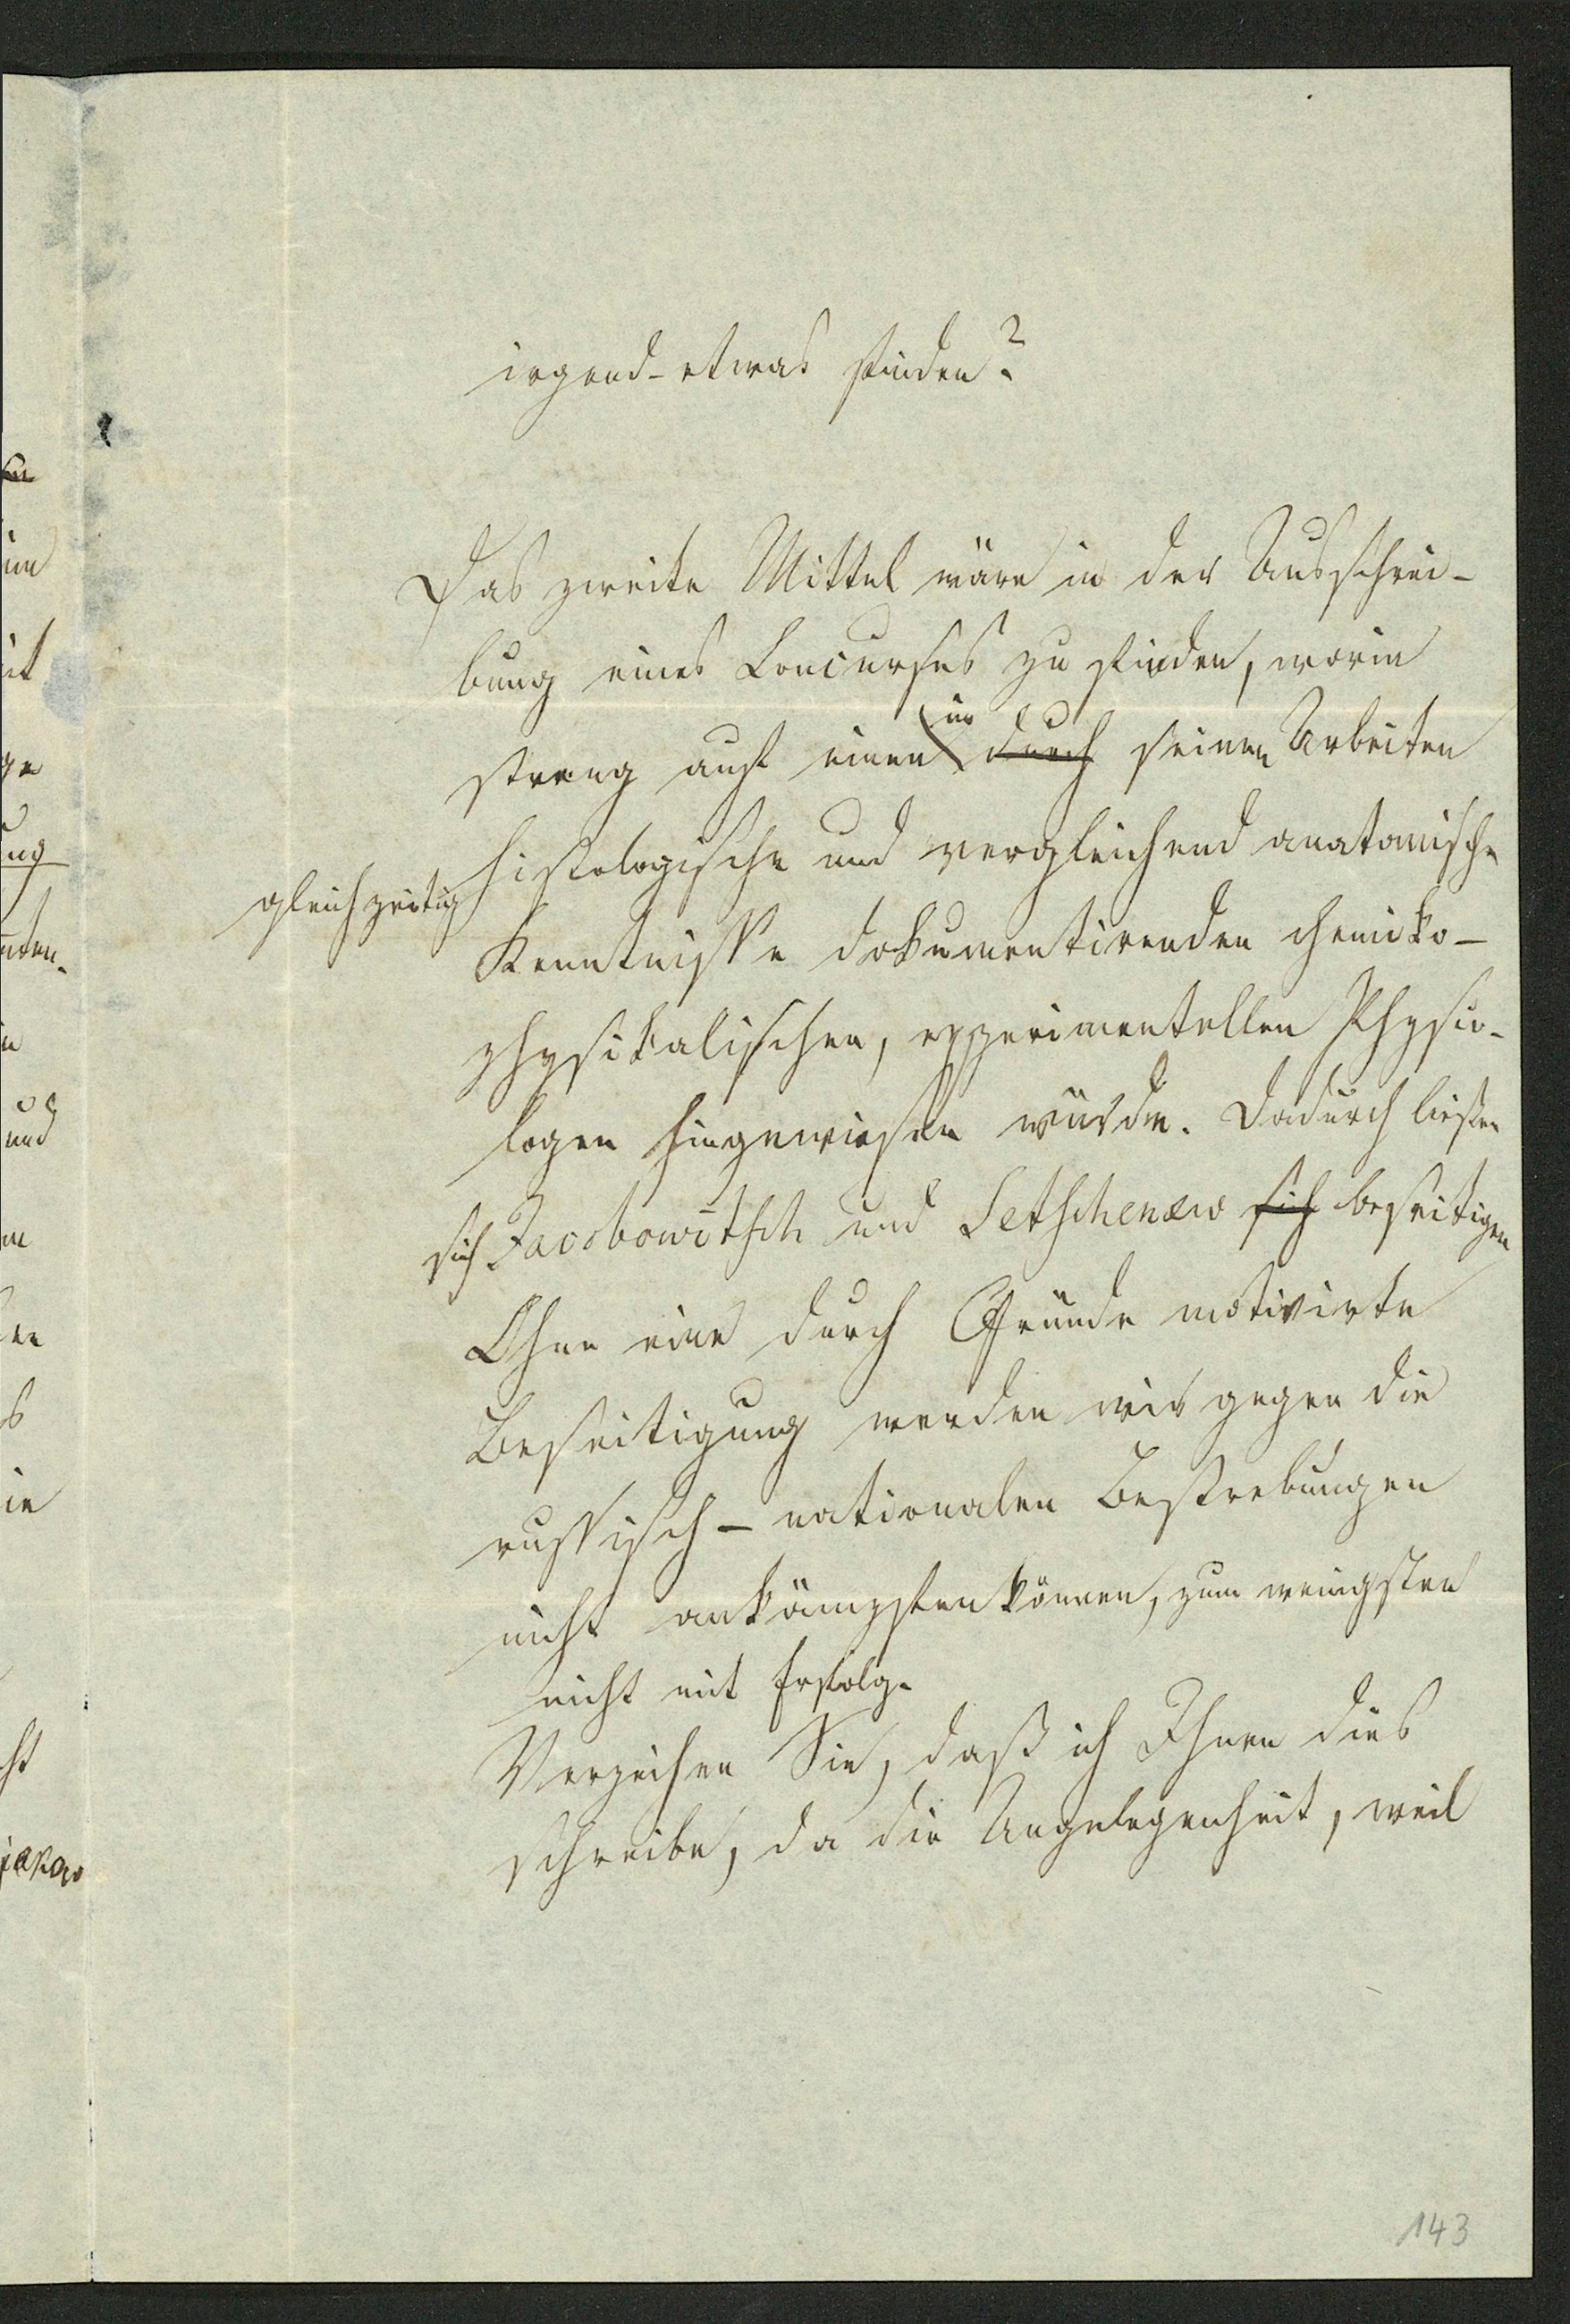 irgend-etwas finden?
Das zweite Mittel wäre in der Ausschrei-
bung eines Concurses zu finden, worin
streng auf einen in durch seinen Arbeiten
gleichzeitig histologische und vergleichend anatomische
Kenntnisse dokumentirenden chemiko-
physikalischen, experimentellen Physio-
logen hingewiesen würde. Dadurch ließen
sich Jacobowitsch und Setschenow sich beseitigen
Ohne eine durch Gründe motivirte
Beseitigung werden wir gegen die
russisch-nationalen Bestrebungen
nicht ankämpfen können, zum wenigsten
nicht mit Erfolg.
Verzeihen Sie, daß ich Ihnen dies
schreibe, da die Angelegenheit, weil
143